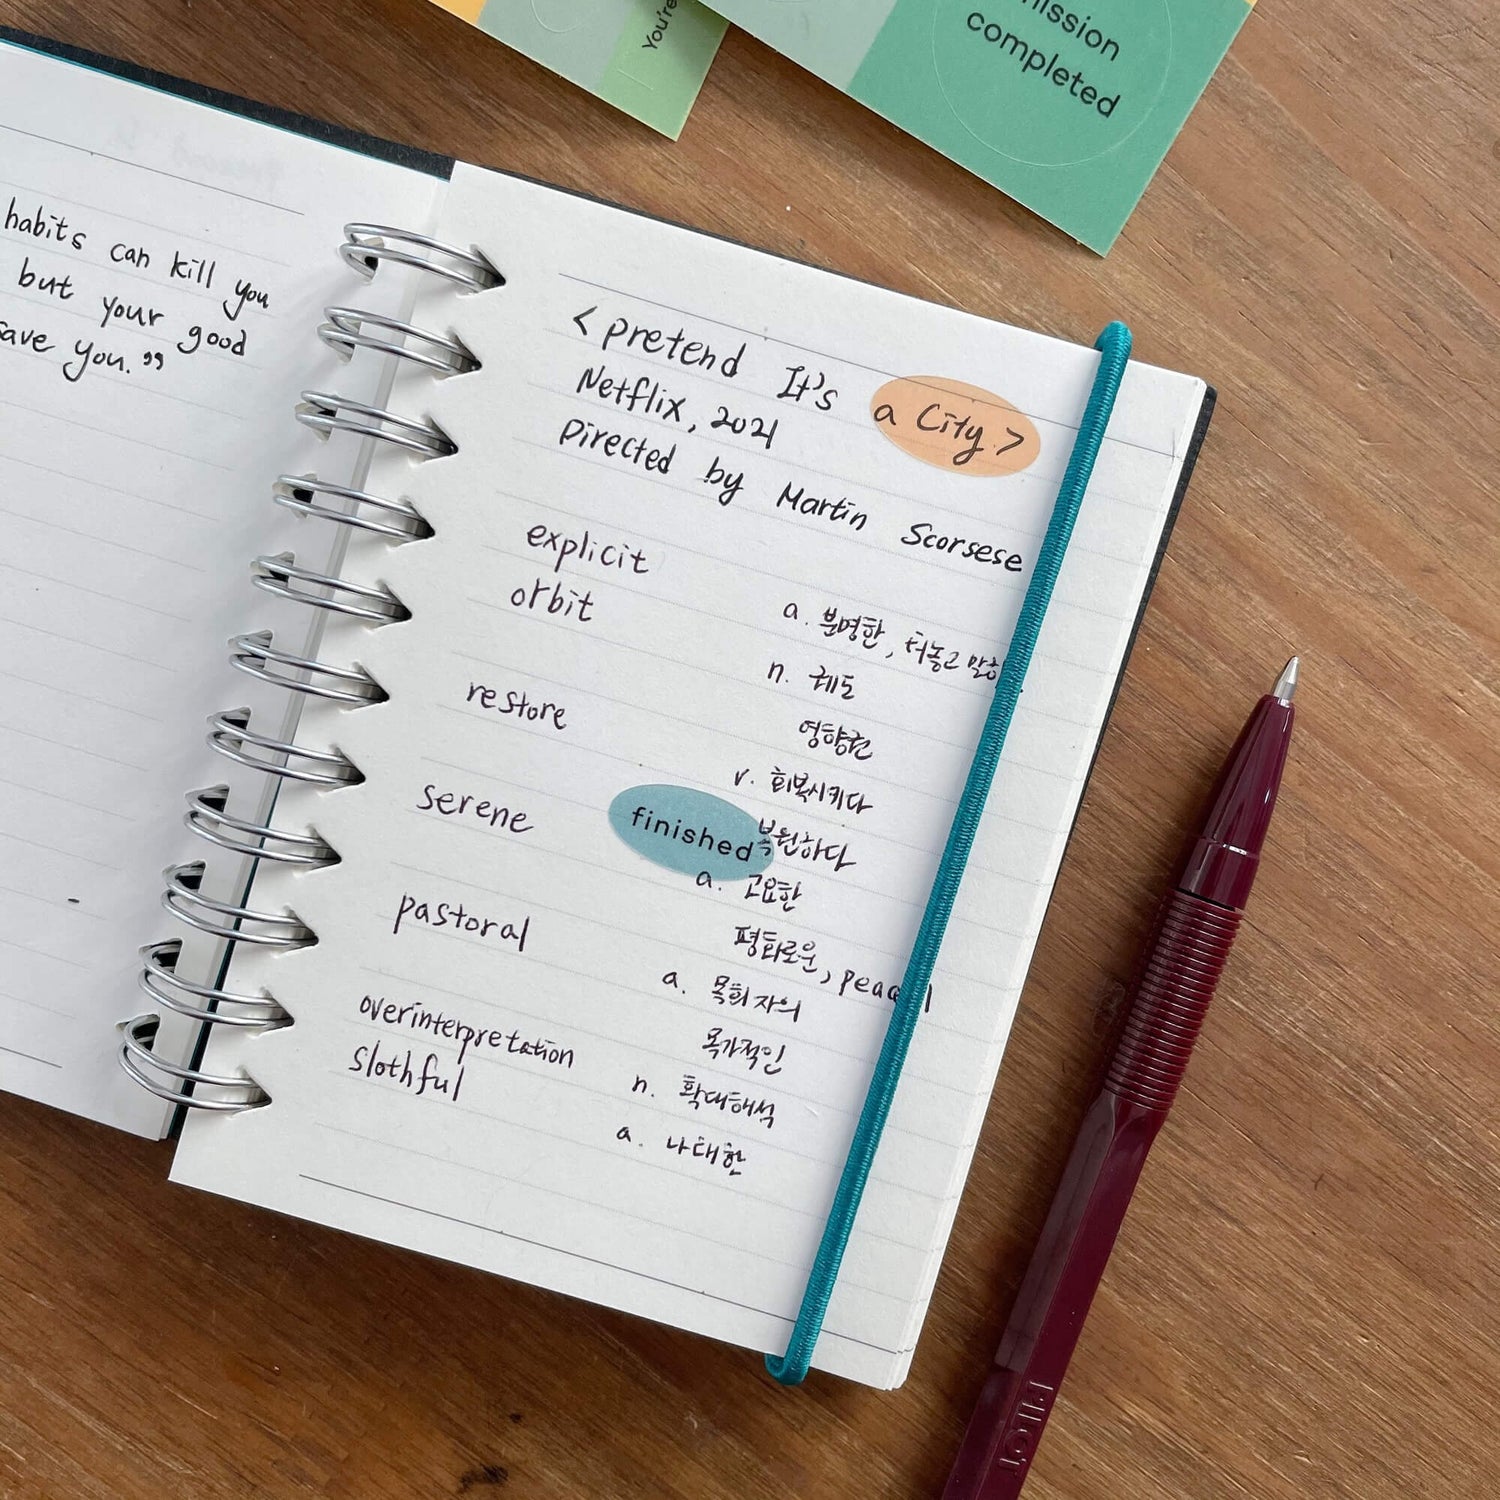 You're
mission
completed
habits can kill you
but your good
save you.”
<pretend It's a City>
Netflix, 2021
Directed by Martin Scorsese
explicit a. 분명한, 터놓고 말하
orbit n. 궤도
영향권
restore v. 회복시키다
복원하다
serene finished a. 고요한
평화로운, peac
pastoral a. 목회자의
목가적인
overinterpretation n. 확대해석
slothful a. 나태한
PILOT